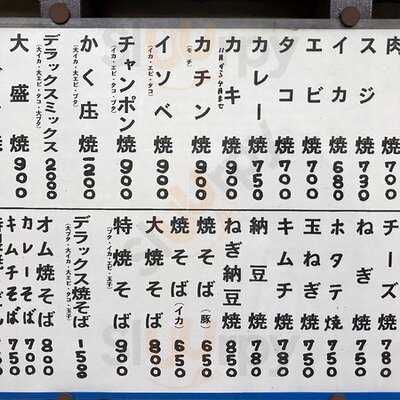 肉
スジ焼
イカ焼 680
エビ焼 700
タコ焼 700
カレー焼 750
カキ焼 900
11月から4月まで
カチン焼 900
(モチ)
イソベ焼 900
(イカ・エビ・タコ)
チャンポン焼 900
(イカ・エビ・タコ・ブタ)
かく庄焼 1200
(大イカ・大エビ・タコ)
デラックスミックス 2000
(大イカ・大エビ・タコ・大ブタ)
大盛焼 900
チーズ焼 780
ねぎ焼 750
ホタテ焼
玉ねぎ焼
キムチ焼 780
納豆焼 780
ねぎ納豆焼 850
焼そば(豚) 650
焼そば(イカ) 650
大焼そば 800
特焼そば 900
(ブタ・イカ・エビ・玉子)
デラックス焼そば
(大ブタ・大イカ・大エビ・タコ・玉子)
オム焼そば 800
カレーそば 700
キムチそば 750